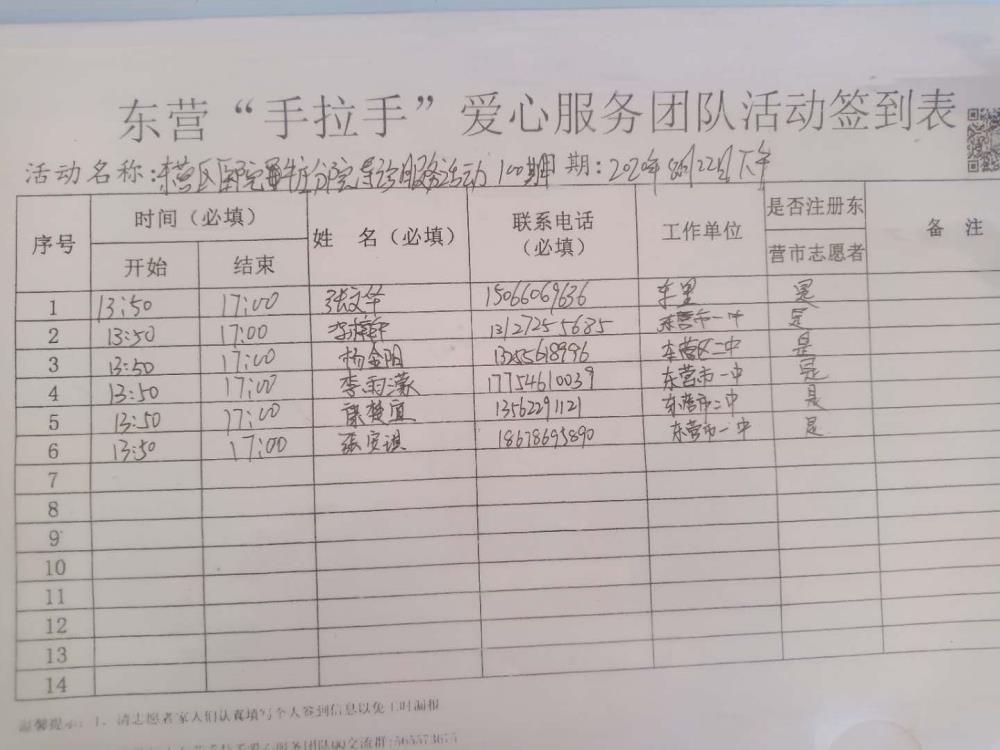 东营“手拉手”爱心服务团队活动签到表
活动名称:东营区医院 分院导诊服务活动100期 日期:2020年8月22日下午
序号 时间(必填) 姓 名(必填) 联系电话(必填) 工作单位 是否注册东营市志愿者 备 注
开始 结束
1 13:50 17:00 张文华 15066069636 是
2 13:50 17:00 13127255685 东营市一中 是
3 13:50 17:00 杨金阳 13255618996 东营区二中 是
4 13:50 17:00 李雨濛 17754610039 东营市一中 是
5 13:50 17:00 13562291121 东营市二中 是
6 13:50 17:00 张安琪 18678695890 东营市一中 是
7
8
9
10
11
12
13
14
温馨提示:1、请志愿者家人们认真填写个人签到信息以免工时漏报
爱心服务团队QQ交流群: